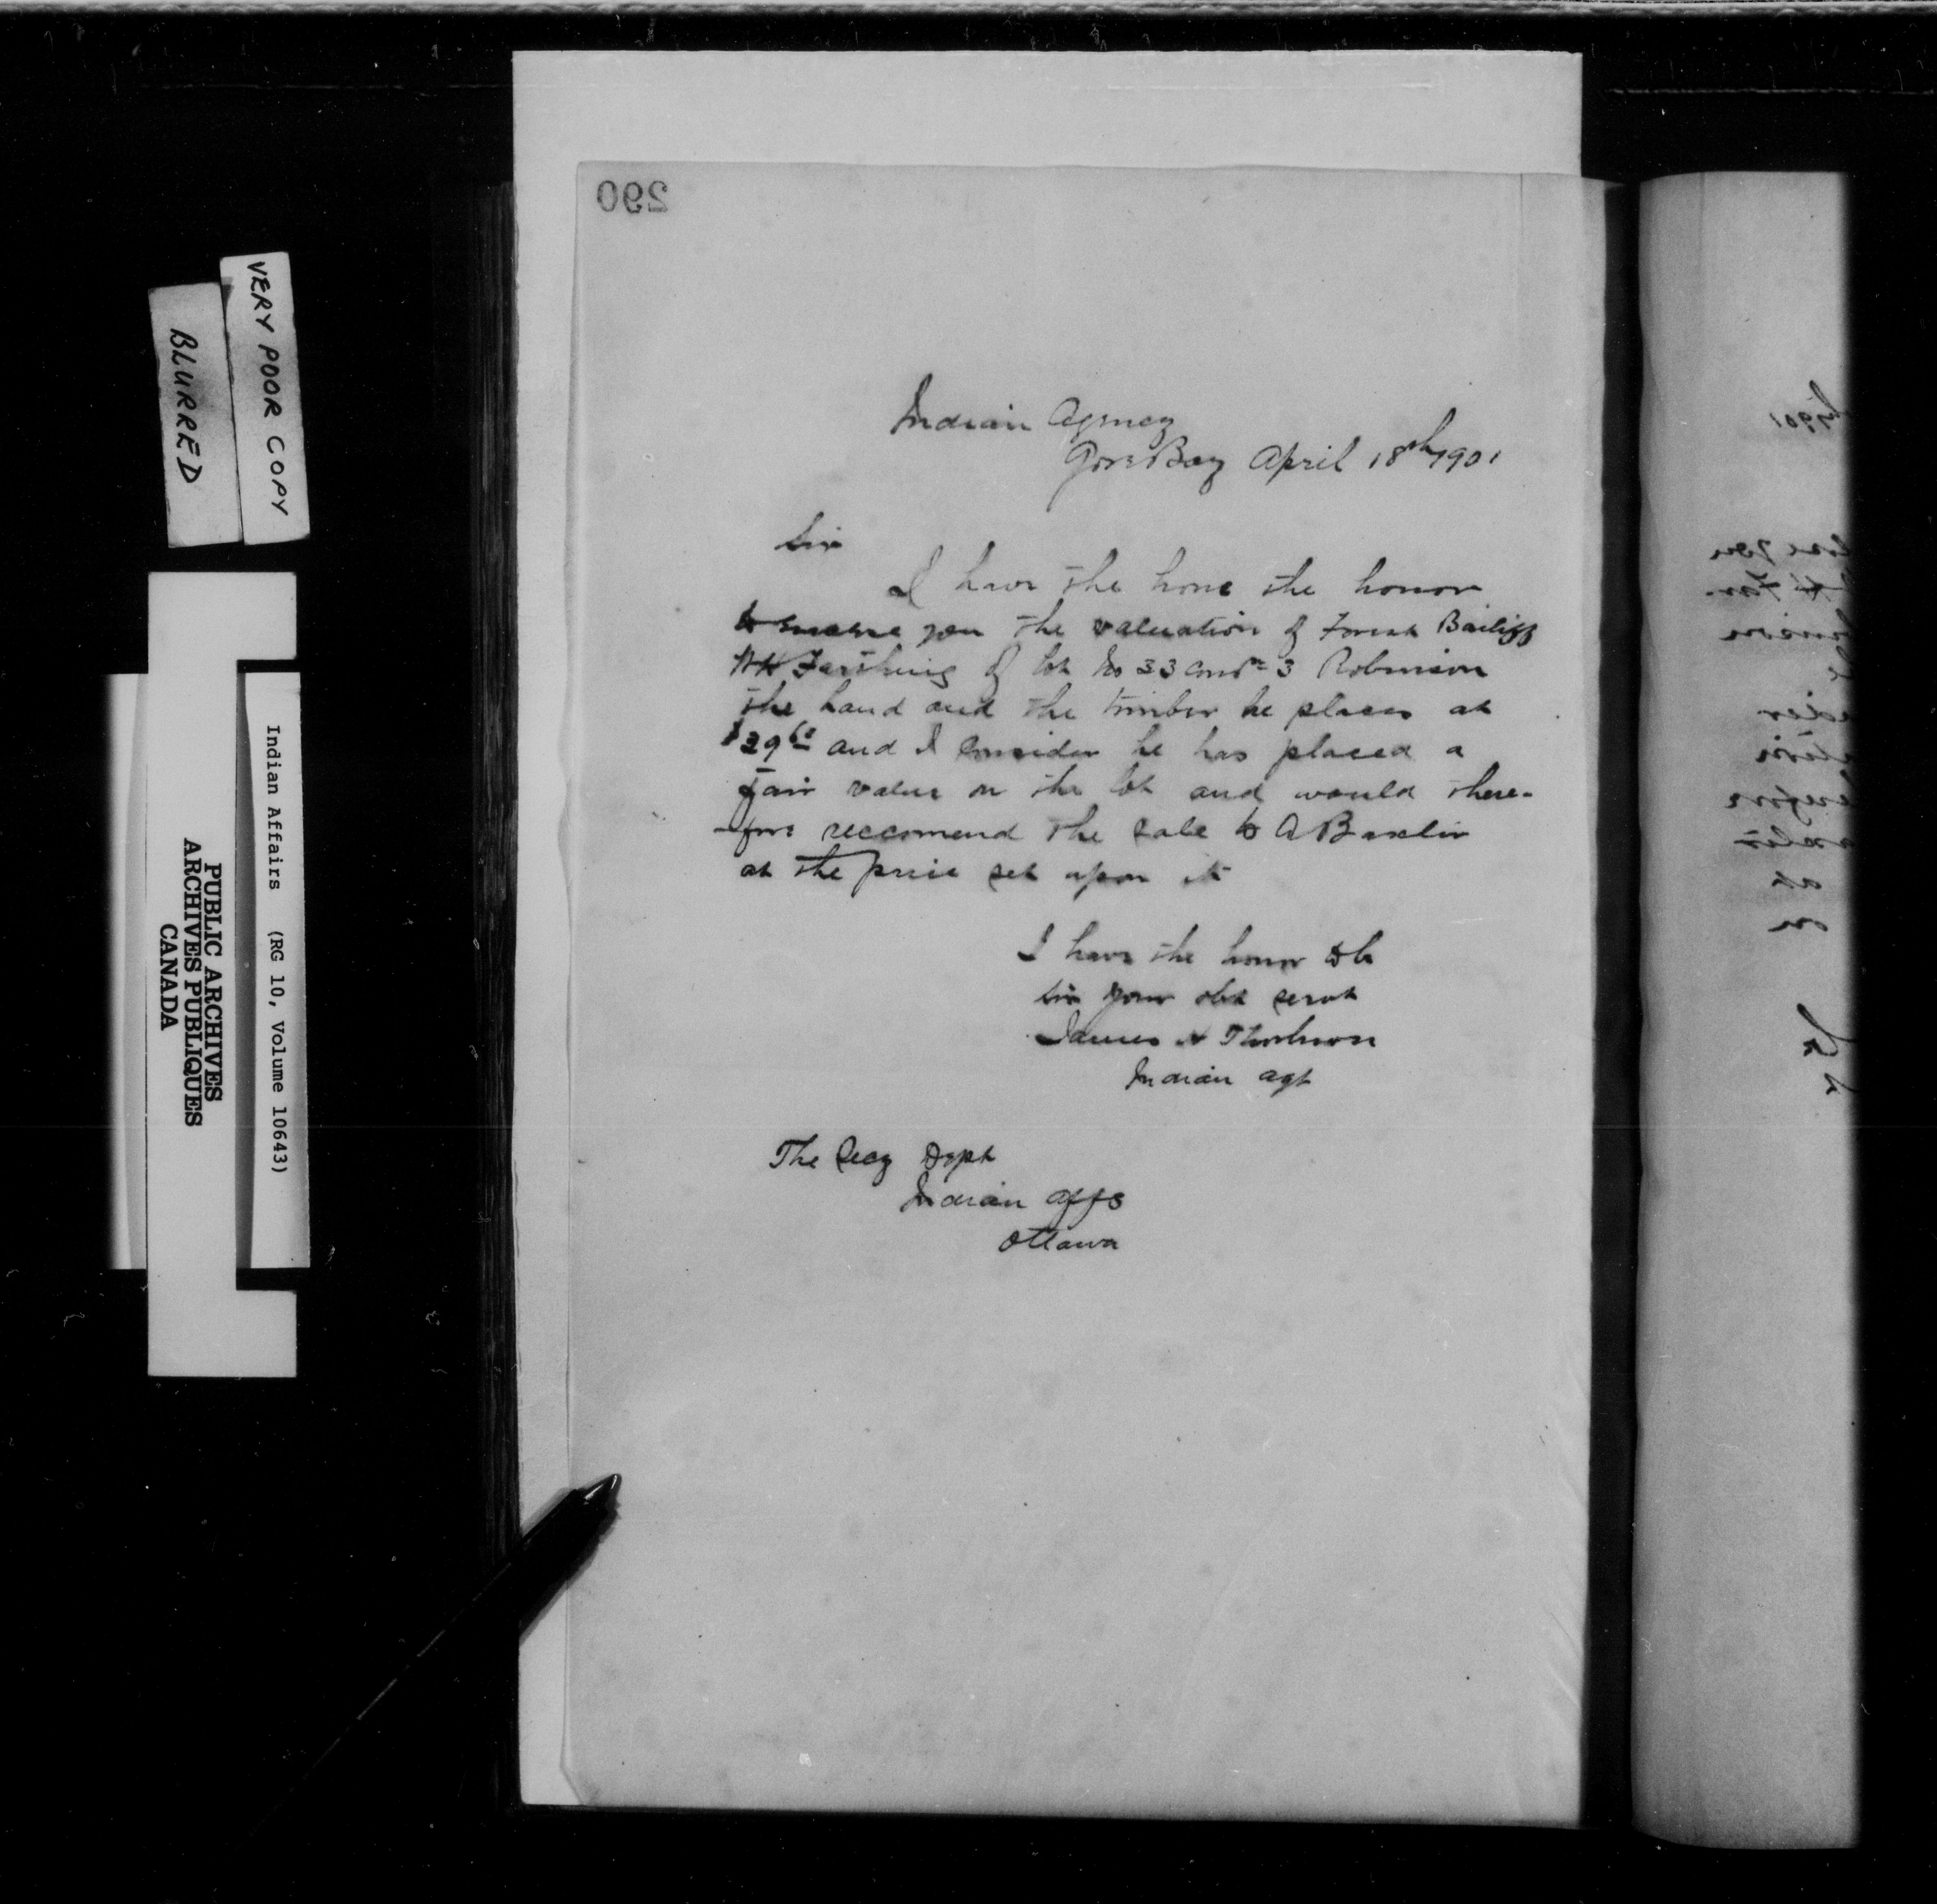 290
Indian Agency
Gore Bay April 18th 1901
Sir
I have the hone the honor
to you the valuation of Forest Bailiff
of lot No 33 Con 3 Robinson
the land and the timber he places at
and I consider he has placed a
fair value on the lot and would there-
-fore reccomend the sale to A
at the price set upon it
I have the honor to be
Sir your obt servt
James H Thorburn
Indian Agt
The Secy Dept
Indian Affs
Ottawa
VERY POOR COPY
BLURRED
Indian Affairs (RG 10, Volume 10643)
PUBLIC ARCHIVES
ARCHIVES PUBLIQUES
CANADA